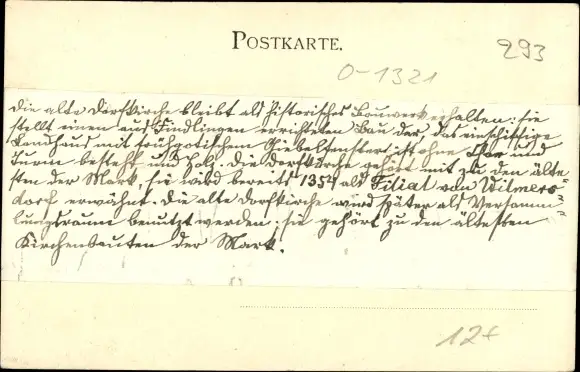 POSTKARTE.
293
0-1321
Die alte Dorfkirche bleibt als historisches Bauwerk erhalten: sie
stellt einen aus Findlingen errichteten Bau dar, das einschiffige
Landhaus mit frühgotischem Giebelfenster ist ohne Chor und
Turm besteht aus Holz. Die Dorfkirche gehört mit zu den älte
sten der Mark, sie wird bereits 1354 als Filial von Wilmers-
dorf erwähnt. Die alte Dorfkirche wird später als Versamm-
lungsraum benutzt werden; sie gehört zu den ältesten
Kirchenbauten der Mark.
12+